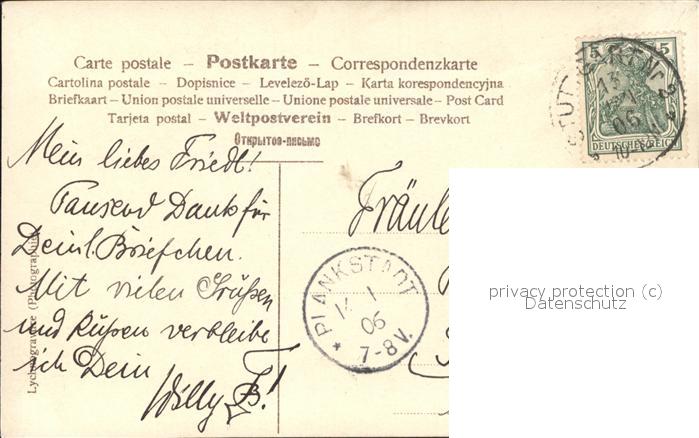 Carte postale – Postkarte – Correspondenzkarte
Cartolina postale – Dopisnice – Levelező-Lap – Karta korespondencyjna
Briefkaart – Union postale universelle – Unione postale universale – Post Card
Tarjeta postal – Weltpostverein – Brefkort – Brevkort
Открытое-письмо
5 5
DEUTSCHES REICH
STUTTGART
Mein liebes Friedl!
Tausend Dank für
Dein l. Briefchen.
Mit vielen Grüßen
und Küßen verbleibe
ich Dein
Willy
Fräule
PLANKSTADT
1
06
7-8 V.
Lychnographie (Photographie)
privacy protection (c)
Datenschutz